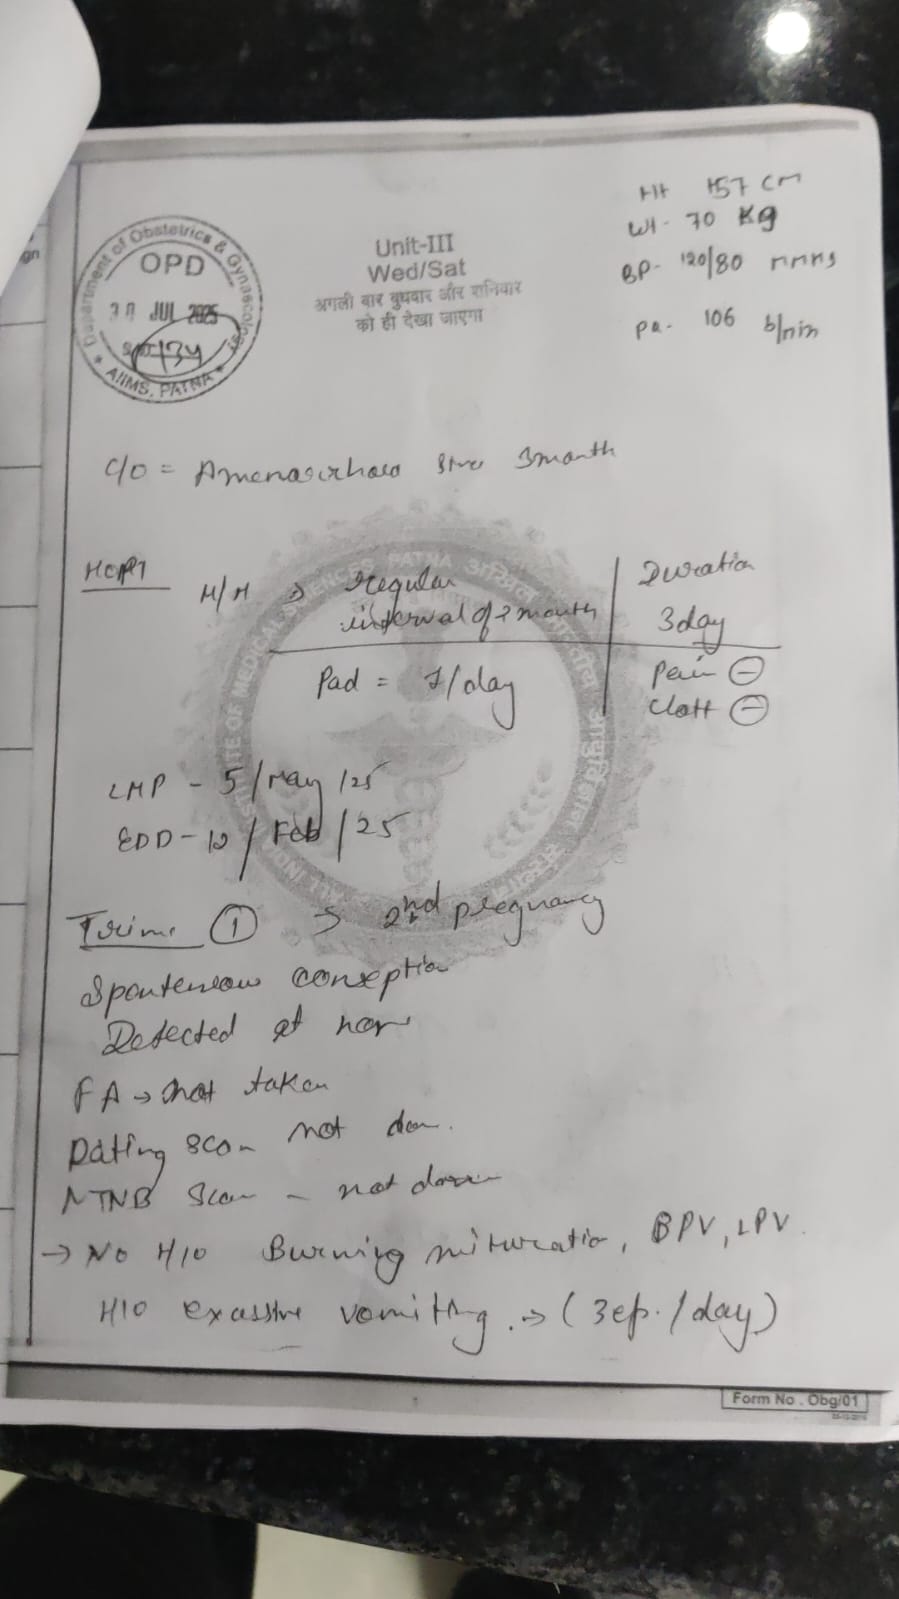 Department of Obstetrics & Gynaecology
OPD
30 JUL 2025
134
AIIMS, PATNA
Unit-III
Wed/Sat
अगली बार बुधवार और शनिवार
को ही देखा जाएगा
Ht 157 cm
Wt - 70 Kg
BP - 120/80 mmHg
PR - 106 b/min
C/O = Amenorrhoea 3month
M/H → regular
interval of month
Duration
3day
Pad = 1/day
Pain ⊖
Clott ⊖
LMP - 5/May/25
EDD - 12/Feb/25
Trime ① → 2nd pregnancy
conseption
Detected at
FA → not taken
Dating scan not don
NTNB Scan - not done
→ No H/O Burning mituration, BPV, LPV.
H/O exassive vomitting. → (3ep./day)
Form No. Obg/01